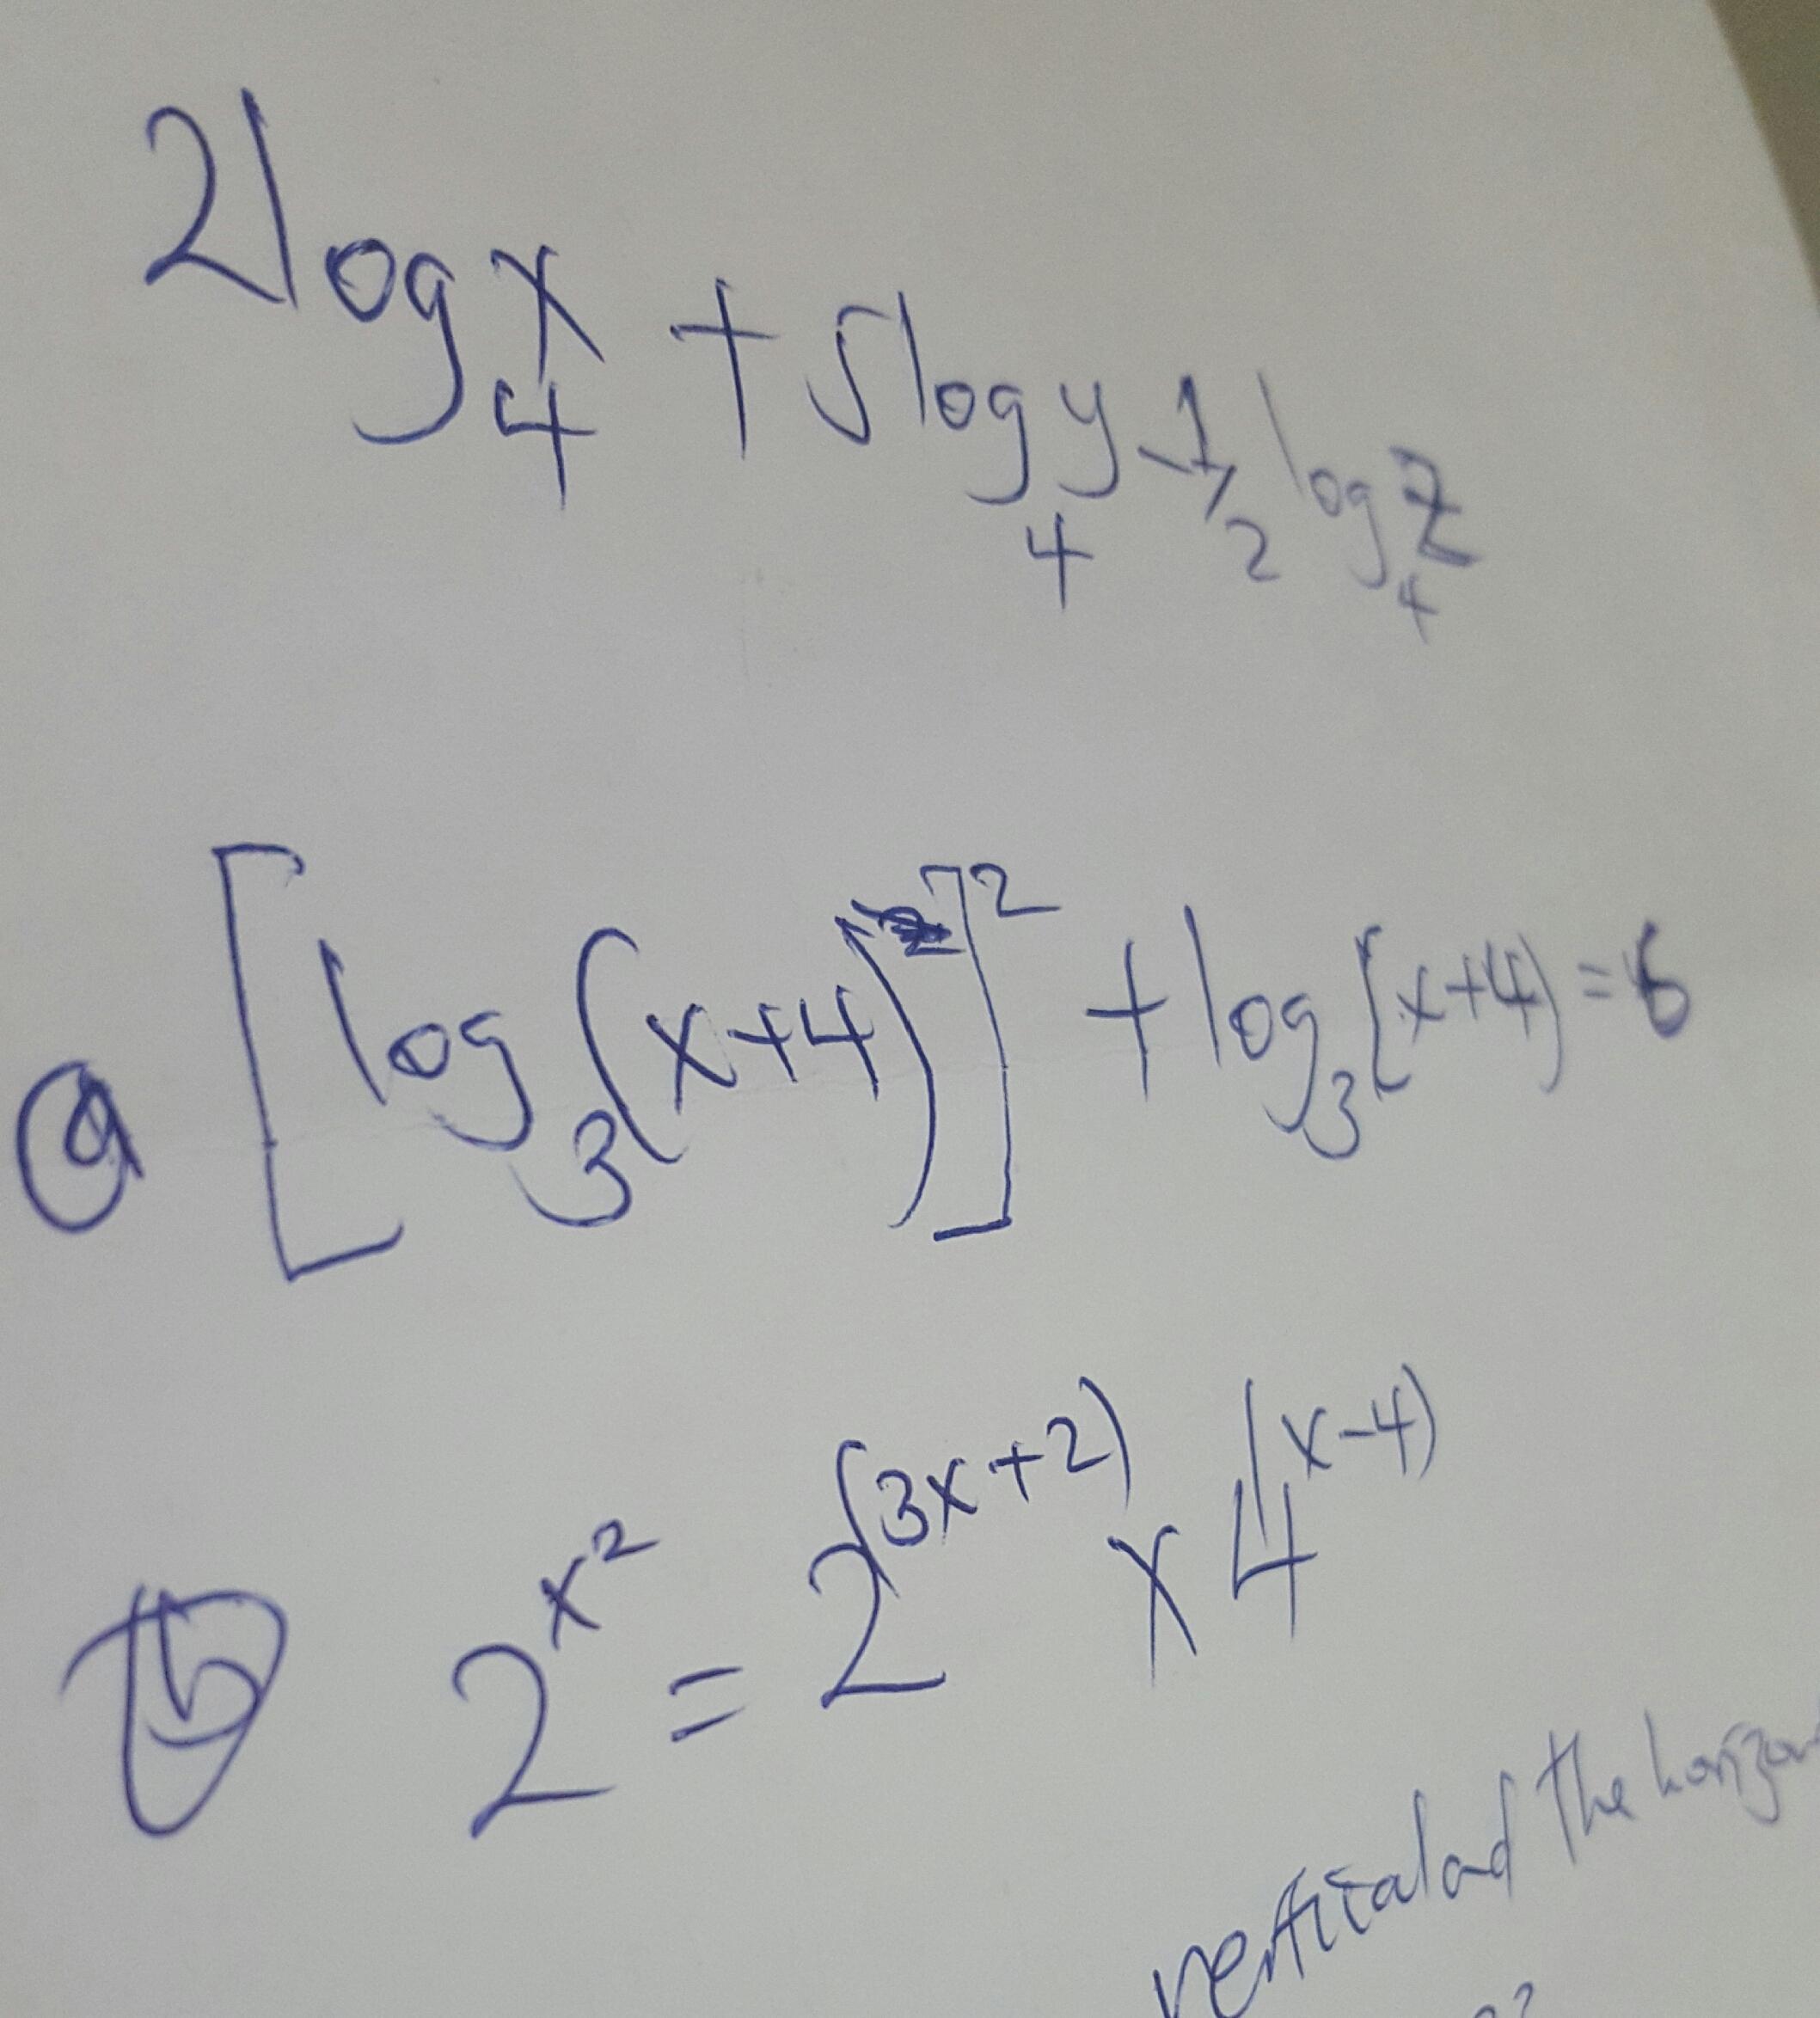 2log₄x + 5log₄y - 1/2 log₄z
ⓐ [log₃(x+4)]² + log₃(x+4) = 6
ⓑ 2^x² = 2^(3x+2) x 4^(x-4)
vertical and the